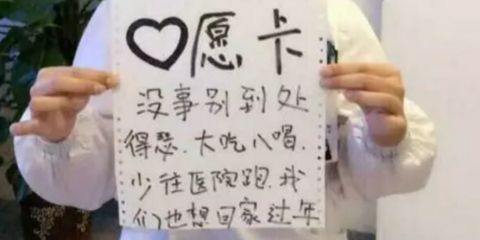 ♡愿卡
没事别到处
得瑟.大吃八喝.
少往医院跑.我
们也想回家过年